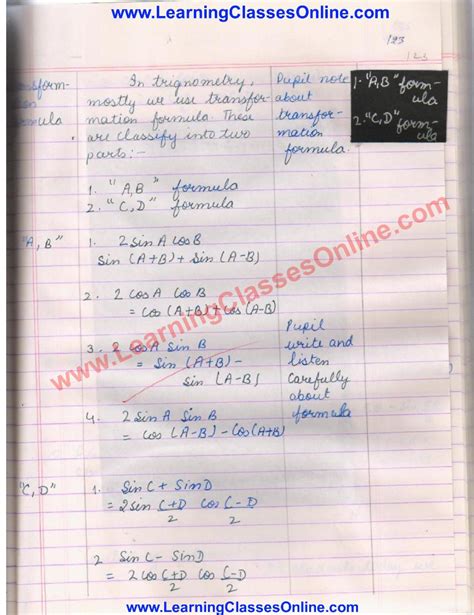 www.LearningClassesOnline.com
123
123
In trignometry,
mostly we use transfor-
mation formula. These
are classify into two
parts:-
1. "A,B" formula
2. "C,D" formula
Pupil note
about
transfor-
mation
formula.
1. "A,B" form-
ula
2. "C,D" form-
ula
"A,B"
1. 2 Sin A Cos B
Sin (A+B) + Sin (A-B)
2. 2 Cos A Cos B
= Cos (A+B) + Cos (A-B)
3. 2 Cos A Sin B
= Sin (A+B) -
Sin (A-B)
4. 2 Sin A Sin B
= Cos (A-B) - Cos (A+B)
Pupil
write and
listen
carefully
about
formula
www.LearningClassesOnline.com
"C,D"
1. Sin C + Sin D
= 2 Sin C+D/2 Cos C-D/2
2 Sin C - Sin D
= 2 Cos C+D/2 Cos C-D/2
www.LearningClassesOnline.com